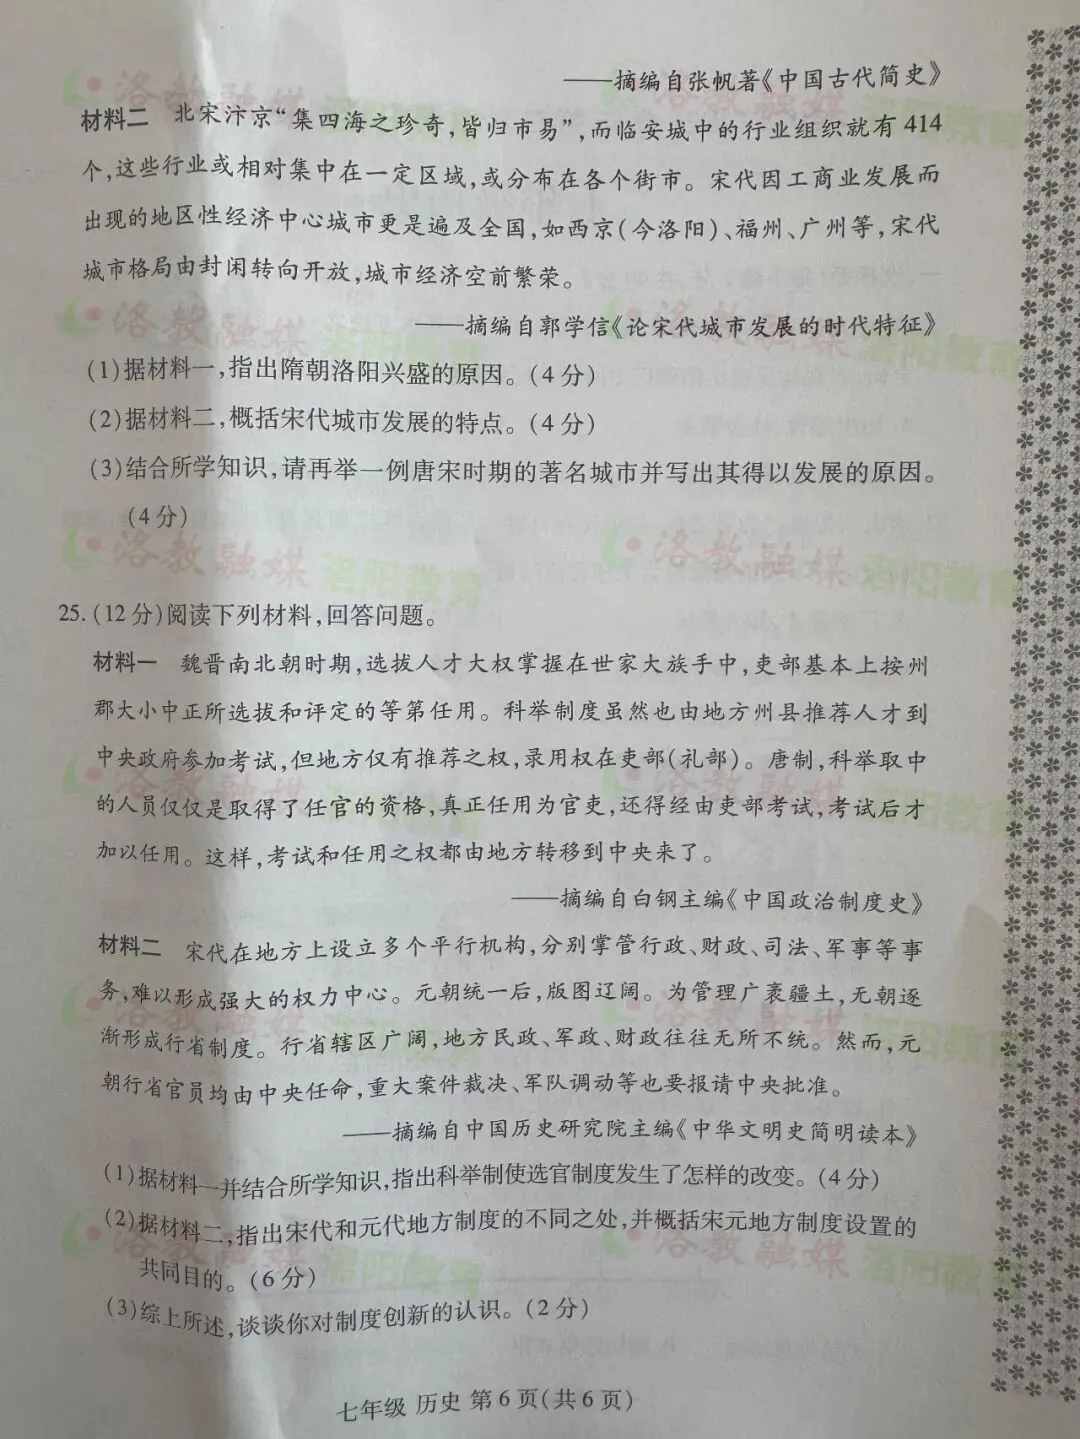 ——摘编自张帆著《中国古代简史》
材料二 北宋汴京“集四海之珍奇,皆归市易”,而临安城中的行业组织就有414
个,这些行业或相对集中在一定区域,或分布在各个街市。宋代因工商业发展而
出现的地区性经济中心城市更是遍及全国,如西京(今洛阳)、福州、广州等,宋代
城市格局由封闭转向开放,城市经济空前繁荣。
——摘编自郭学信《论宋代城市发展的时代特征》
(1)据材料一,指出隋朝洛阳兴盛的原因。(4分)
(2)据材料二,概括宋代城市发展的特点。(4分)
(3)结合所学知识,请再举一例唐宋时期的著名城市并写出其得以发展的原因。
(4分)
25.(12分)阅读下列材料,回答问题。
材料一 魏晋南北朝时期,选拔人才大权掌握在世家大族手中,吏部基本上按州
郡大小中正所选拔和评定的等第任用。科举制度虽然也由地方州县推荐人才到
中央政府参加考试,但地方仅有推荐之权,录用权在吏部(礼部)。唐制,科举取中
的人员仅仅是取得了任官的资格,真正任用为官吏,还得经由吏部考试,考试后才
加以任用。这样,考试和任用之权都由地方转移到中央来了。
——摘编自白钢主编《中国政治制度史》
材料二 宋代在地方上设立多个平行机构,分别掌管行政、财政、司法、军事等事
务,难以形成强大的权力中心。元朝统一后,版图辽阔。为管理广袤疆土,元朝逐
渐形成行省制度。行省辖区广阔,地方民政、军政、财政往往无所不统。然而,元
朝行省官员均由中央任命,重大案件裁决、军队调动等也要报请中央批准。
——摘编自中国历史研究院主编《中华文明史简明读本》
(1)据材料一并结合所学知识,指出科举制使选官制度发生了怎样的改变。(4分)
(2)据材料二,指出宋代和元代地方制度的不同之处,并概括宋元地方制度设置的
共同目的。(6分)
(3)综上所述,谈谈你对制度创新的认识。(2分)
七年级 历史 第6页(共6页)
洛教融媒 洛阳教育